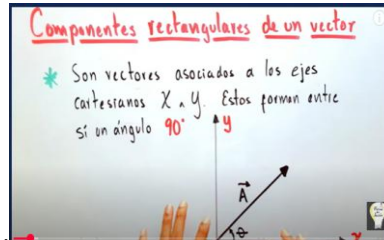 Componentes rectangulares de un vector
* Son vectores asociados a los ejes
cartesianos X ∧ Y. Estos forman entre
sí un ángulo 90°
y
A
θ
x